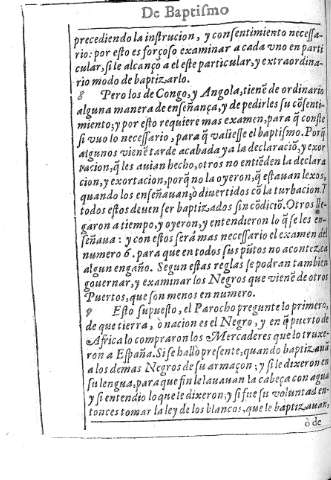 De Baptiſmo
precediendo la inſtrucion, y conſentimiento neceſſa-
rio: por eſto es forçoſo examinar a cada vno en parti
cular, ſi le alcançò a el eſte particular, y extraordina-
rio modo de baptizarlo.
Pero los de Congo, y Angola, tienē de ordinario
alguna manera de enſeñança, y de pedirles ſu cōſenti-
miento; y por eſto requiere mas examen, para q̄ conſte
ſi vuo lo neceſſario, para q̄ valieſſe el baptiſmo. Porq̄
algunos vienē tarde acabada ya la declaraciō, y exor
tacion, q̄ les auian hecho, otros no entiēden la declara
cion, y exortacion, porq̄ no la oyeron, q̄ eſtauan lexos,
quando los enſeñauan, ò divertidos cō la turbacion. Y
todos eſtos deuen ſer baptizados ſin cōdiciō. Otros lle-
garon a tiempo, y oyeron, y entendieron lo q̄ ſe les en-
ſeñaua: y con eſtos ſerà mas neceſſario el examen del
numero 6. para que en todos ſus pūtos no acontezca
algun engaño. Segun eſtas reglas ſe podran tambien
gouernar, y examinar los Negros que vienē de otros
Puertos, que ſon menos en numero.
Eſto ſupueſto, el Parocho pregunte lo primero,
de que tierra, ò nacion es el Negro, y en q̄ puerto de
Africa lo compraron los Mercaderes que lo truxe-
ron a Eſpaña. Si ſe hallò preſente, quando baptizauā
a los demas Negros de ſu armaçon; y ſi le dixeron en
ſu lengua, para que fin le lauauan la cabeça con agua
y ſi entendio lo que le dixeron, y ſi fue ſu voluntad en-
tonces tomar la ley de los blancos, que le baptizauan,
ò de